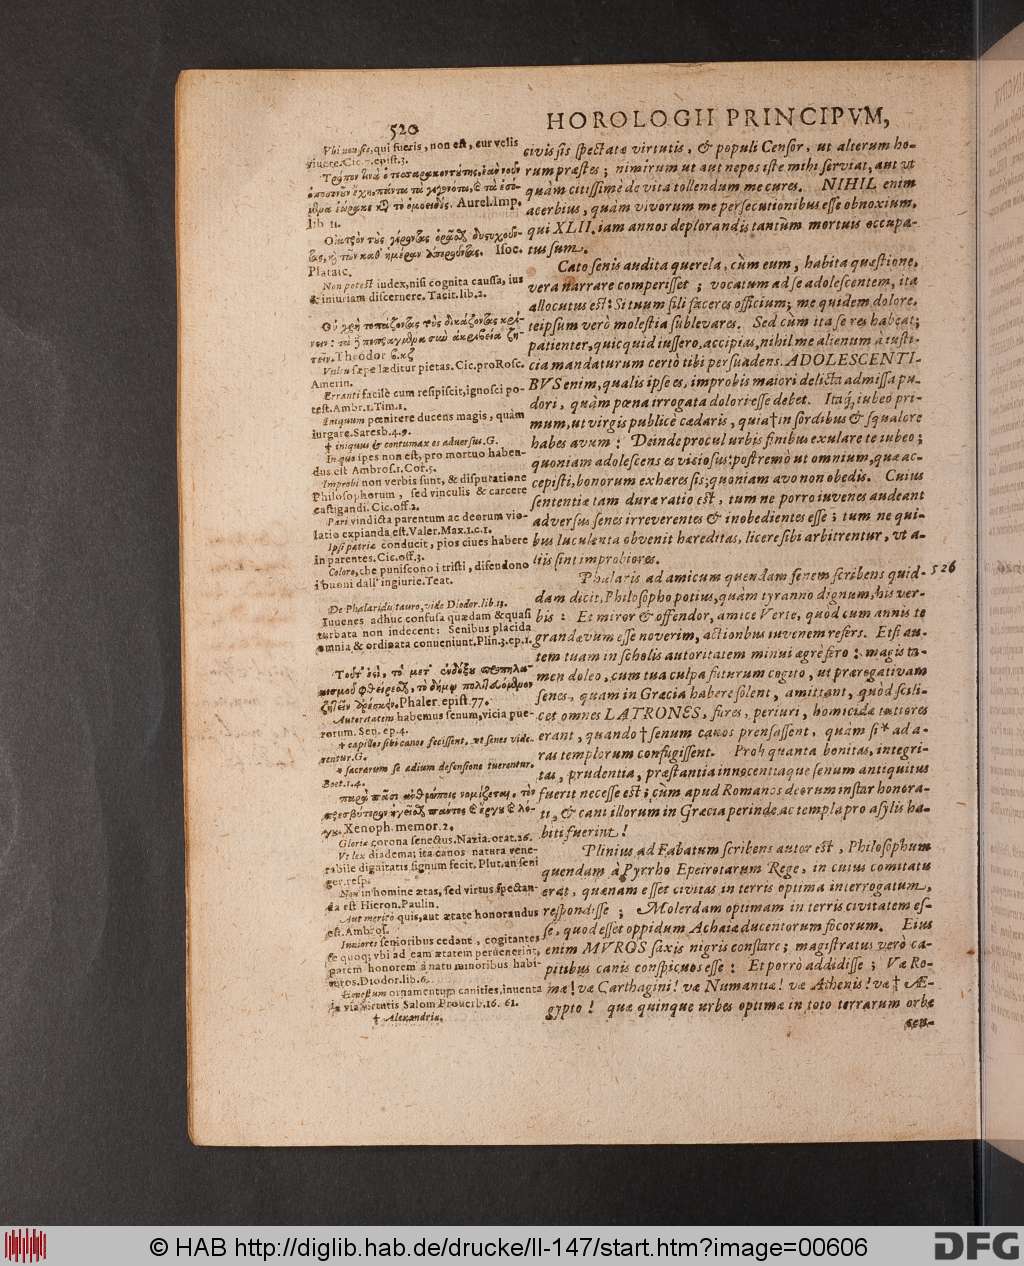 520
HOROLOGII PRINCIPVM,
Vbi non sis, qui fueris, non est, cur velis
viuere. Cic. 7. epist. 3.
Aurel. Imp.
lib. 11.
Isoc.
Plataic.
Non potest iudex, nisi cognita caussa, ius
& iniuriam discernere. Tacit. lib. 2.
Theodor
Vultu sæpe læditur pietas. Cic. pro Rosc.
Amerin.
Erranti facilè cum resipiscit, ignosci po-
test. Ambr. 1. Tim. 1.
Iniquum pœnitere ducens magis, quàm
iurgare. Saresb. 4. 9.
† iniquus & contumax es adversus. G.
In quo spes non est, pro mortuo haben-
dus est Ambros. 1. Cor. 5.
Improbi non verbis sunt, & disputatione
Philosophorum, sed vinculis & carcere
castigandi. Cic. off. 2.
Pari vindicta parentum ac deorum vio-
latio expianda est. Valer. Max. 1. c. 1.
Ipsi patriæ conducit, pios ciues habere
in parentes. Cic. off. 3.
Coloro, che puniscono i tristi, difendono
i buoni dall' ingiurie. Teat.
De Phalaridis tauro, vide Diodor. lib. 13.
Iuuenes adhuc confusa quædam & quasi
turbata non indecent: Senibus placida
omnia & ordinata conueniunt. Plin. 3. ep. 1.
Phaler. epist. 77.
Autoritatem habemus senum, vicia pue-
rorum. Sen. ep. 4.
† capillos sibi canos fecissent, ut senes vide-
rentur. G.
* sacrarum se ædium defensione tuerentur.
Boet. 1. 4.
Xenoph. memor. 2.
Gloriæ corona senectus. Nazia. orat. 26.
Vt lex diadema; ita canos natura vene-
rabile dignitatis signum fecit. Plut. an seni
ger. resp.
Non in homine ætas, sed virtus spectan-
da est Hieron. Paulin.
Aut merito quis, aut ætate honorandus
est. Ambros.
Iuniores senioribus cedant, cogitantes
se quoq; vbi ad eam ætatem peruenerint,
parem honorem à natu minoribus habi-
turos. Diodor. lib. 6.
Honestum ornamentum canities, inuenta
in via virtutis Salom Prouerb. 16. 61.
† Alexandria.
civis sis spectatæ virtutis, & populi Censor, ut alterum ho-
rum præstes; nimirum ut aut nepos iste mihi serviat, aut ut
quàm citissimè de vita tollendum me cures. NIHIL enim
acerbius, quàm vivorum me persecutionibus esse obnoxium,
qui XLII. iam annos deplorandis tantùm mortuis occupa-
tus sum.
Cato senis audita querela, cùm eum, habita quæstione,
vera narrare comperisset; vocatum ad se adolescentem, ita
allocutus est: Si tuum fili faceres officium; me quidem dolore,
teipsum verò molestia sublevares. Sed cùm ita se res habeat;
patienter, quicquid iussero, accipias, nihil me alienum à iusti-
cia mandaturum certò tibi persuadens. ADOLESCENTI-
BVS enim, qualis ipse es, improbis maiori delicta admissa pu-
dori, quàm pœna irrogata dolori esse debet. Itaq́; iubeo pri-
mum, ut virgis publicè cædaris, quia † in sordibus & squalore
habes avum: Deinde procul urbis finibus exulare te iubeo;
quoniam adolescens es viciosus: postremò ut omnium, quæ ac-
cepisti, bonorum exhæres sis; quoniam avo non obedis. Cuius
sententiæ tam duræ ratio est, tum ne porro iuvenes audeant
adversus senes irreverentes & inobedientes esse; tum ne qui-
bus luculenta obvenit hæreditas, licere sibi arbitrentur, ut a-
liis sint improbiores.
Phalaris ad amicum quendam senem scribens quid-
dam dicit, Philosopho potius, quàm tyranno dignum, his ver-
bis: Et miror & offendor, amice Verte, quòd cum annis te
grandævum esse noverim, actionibus iuvenem refers. Etsi au-
tem tuam in scholis autoritatem minui ægrè fero; magis ta-
men doleo, cum tua culpa futurum cogito, ut prærogativam
senes, quam in Græcia habere solent, amittant, quòd scili-
cet omnes LATRONES, fures, periuri, homicidæ tutiores
erant, quando † senum canos prensassent, quàm si * ad a-
ras templorum confugissent. Proh quanta bonitas, integri-
tas, prudentia, præstantia innocentiaque senum antiquitus
fuerit necesse est; cùm apud Romanos deorum instar honora-
ti, & cani illorum in Græcia perinde ac templa pro asylis ha-
biti fuerint!
Plinius ad Fabatum scribens autor est, Philosophum
quendam à Pyrrho Epeirotarum Rege, in cuius comitatu
erat, quænam esset civitas in terris optima interrogatum,
respondisse; Molerdam optimam in terris civitatem es-
se, quod esset oppidum Achaiæ ducentorum focorum. Eius
enim MVROS saxis nigris constare; magistratus verò ca-
pitibus canis conspicuos esse: Et porrò addidisse; Væ Ro-
mæ! væ Carthagini! væ Numantiæ! væ Athenis! væ † Æ-
gypto! quæ quinque urbes optimæ in toto terrarum orbe
cen-
526
© HAB http://diglib.hab.de/drucke/li-147/start.htm?image=00606
DFG